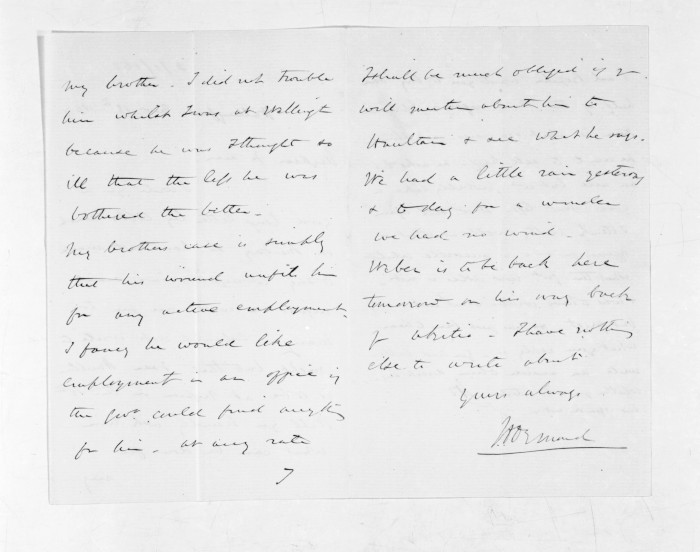 my brother. I did not trouble
him whilst I was at Wellingtn
because he was I thought so
ill that the less he was
bothered the better.
My brothers case is simply
that his wound unfits him
for any active employment.
I fancy he would like
employment in an office if
the govt. could find anything
for him. at any rate
7
I shall be much obliged if yr.
will mention about him to
Haultain & see what he says.
We had a little rain yesterday
& to day for a wonder
we had no wind.
Weber is to be back here
tomorrow on his way back
I have nothing
else to write about
Yours always
J D Ormond